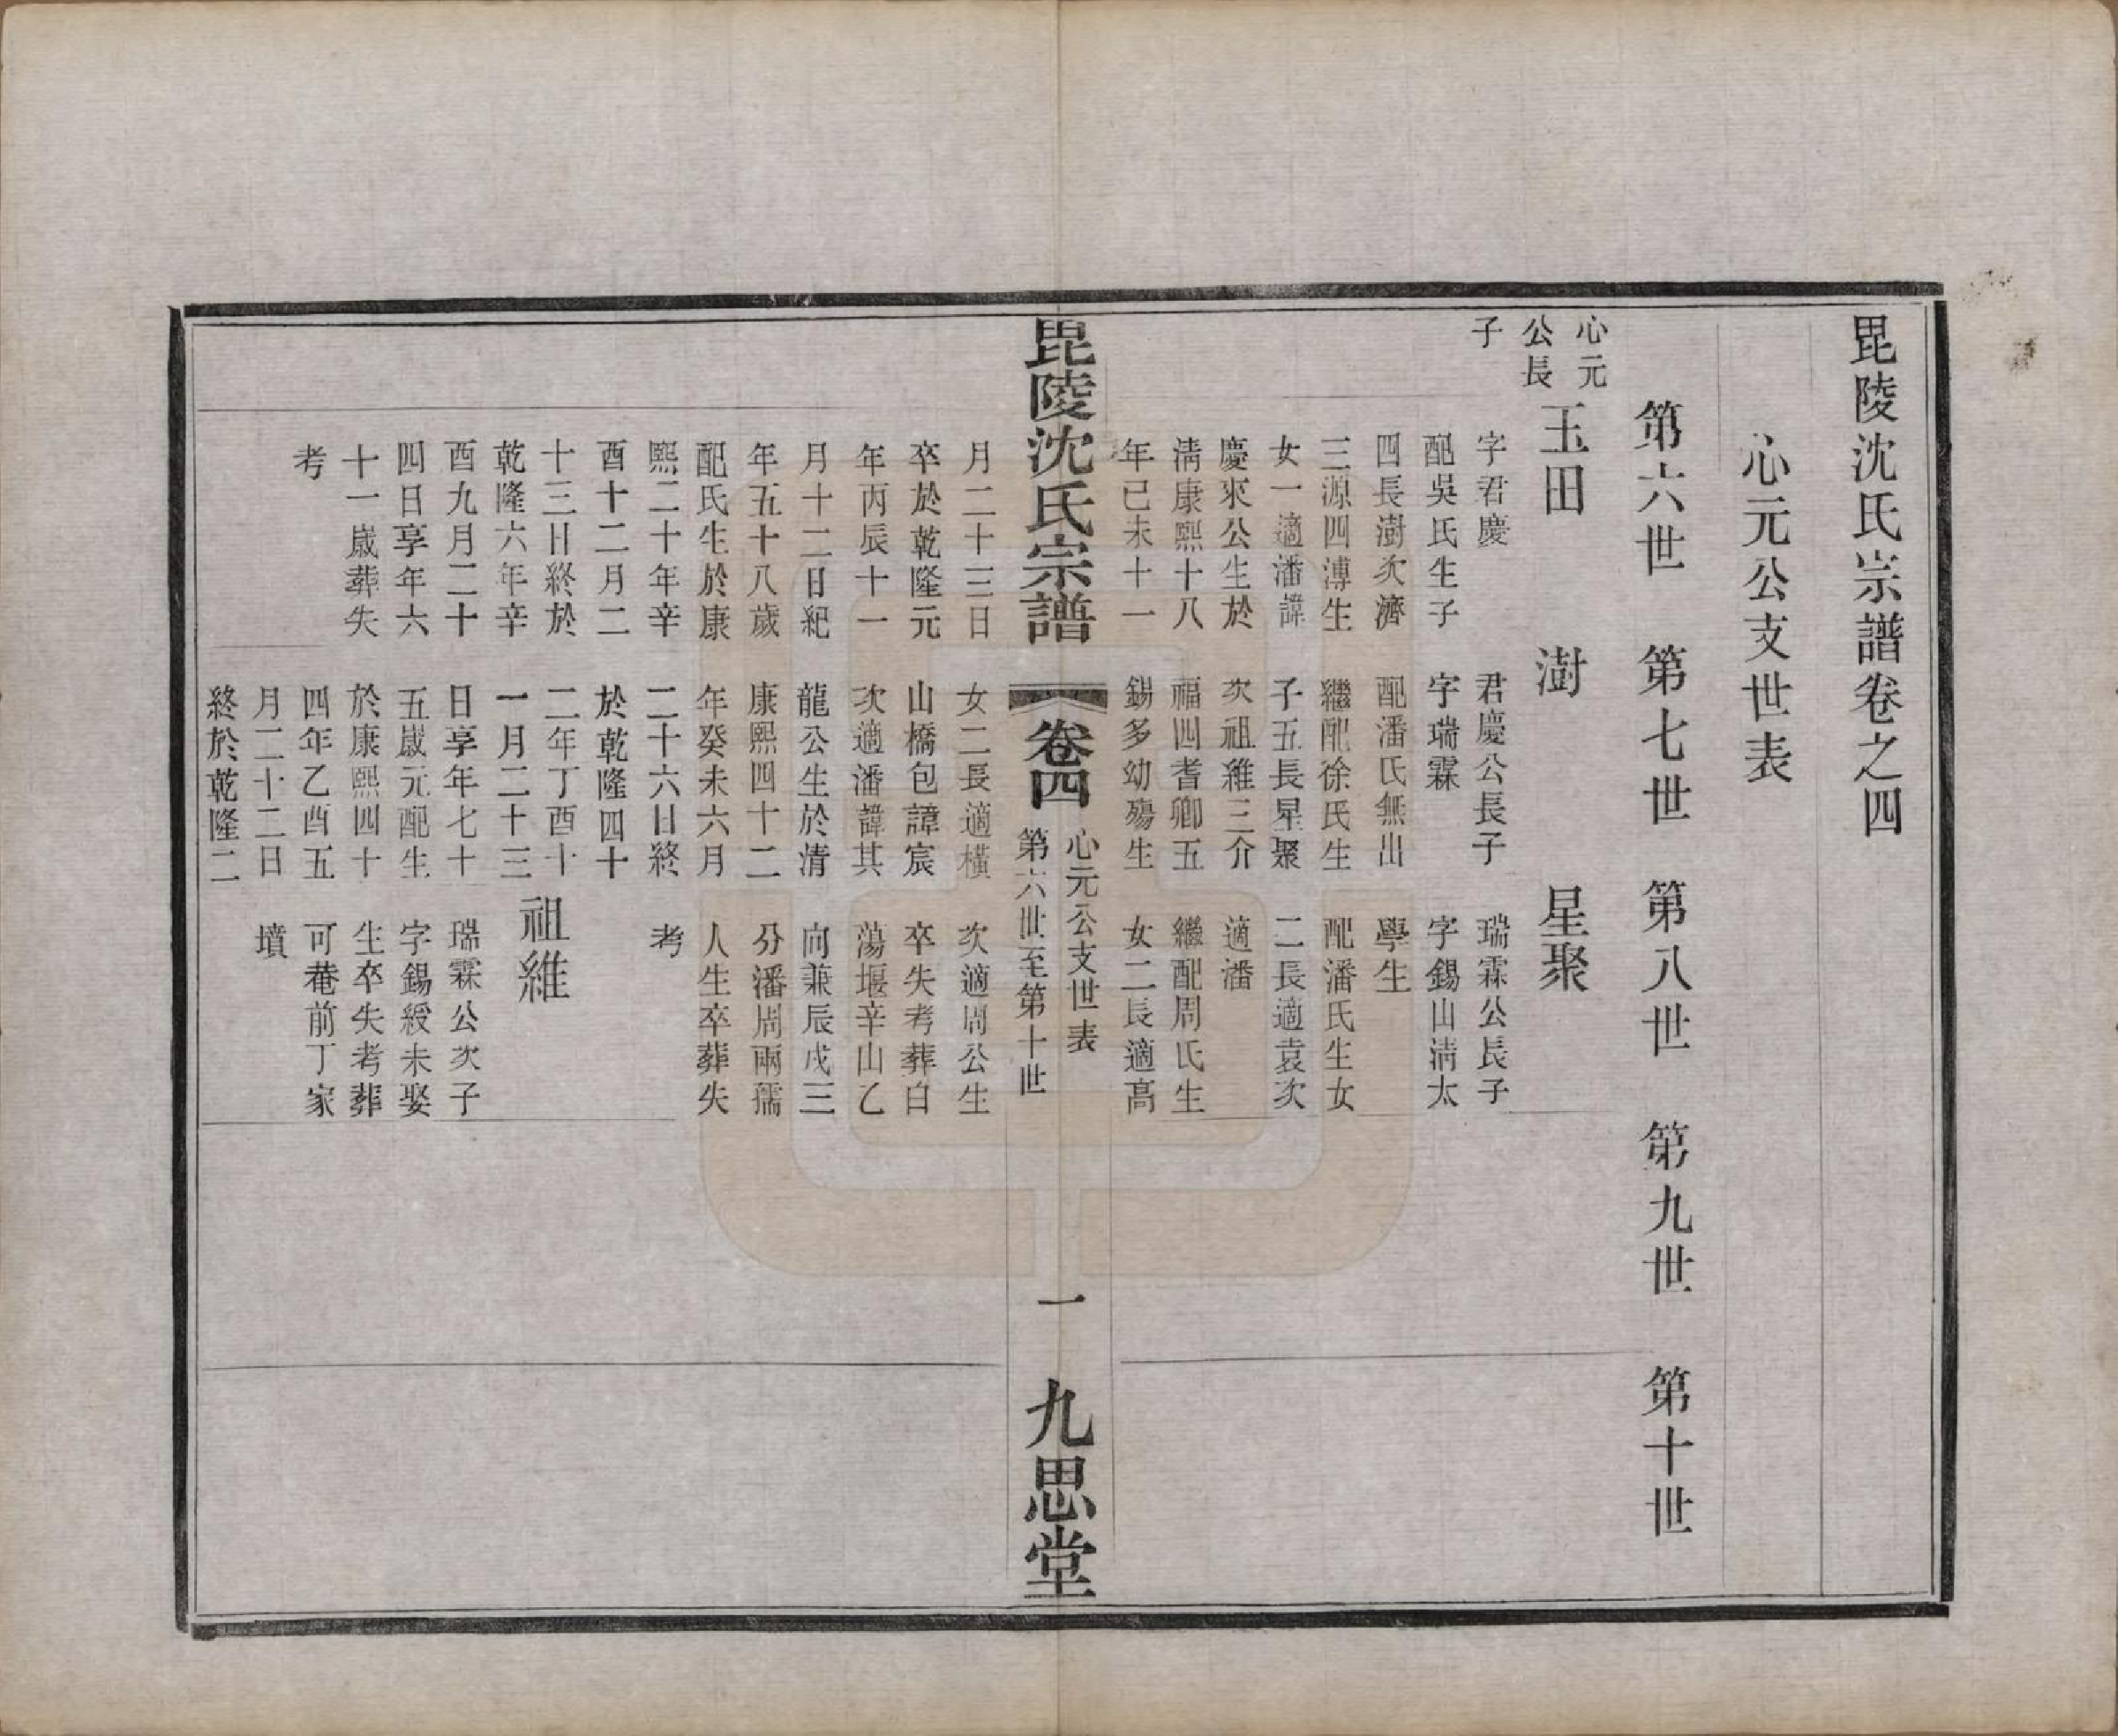 毘陵沈氏宗譜卷之四
心元公支世表
第六世
第七世
第八世
第九世
第十世
心元
公長
子
玉田
字君慶
配吳氏生子
四長澍次濟
三源四溥生
女一適潘諱
慶來公生於
清康熙十八
年己未十一
月二十三日
卒於乾隆元
年丙辰十一
月十二日紀
年五十八歲
配氏生於康
熙二十年辛
酉十二月二
十三日終於
乾隆六年辛
酉九月二十
四日享年六
十一歲葬失
考
澍
君慶公長子
字瑞霖
配潘氏無出
繼配徐氏生
子五長星聚
次祖維三介
福四耆卿五
錫多幼殤生
女二長適橫
山橋包諱宸
次適潘諱其
龍公生於清
康熙四十二
年癸未六月
二十六日終
於乾隆四十
二年丁酉十
一月二十三
日享年七十
五歲元配生
於康熙四十
四年乙酉五
月二十二日
終於乾隆二
星聚
瑞霖公長子
字錫山清太
學生
配潘氏生女
二長適袁次
適潘
繼配周氏生
女二長適高
次適周公生
卒失考葬白
蕩堰辛山乙
向兼辰戌三
分潘周兩孺
人生卒葬失
考
祖維
瑞霖公次子
字錫綬未娶
生卒失考葬
可菴前丁家
墳
毘陵沈氏宗譜
卷四
心元公支世表
第六世至第十世
一
九思堂